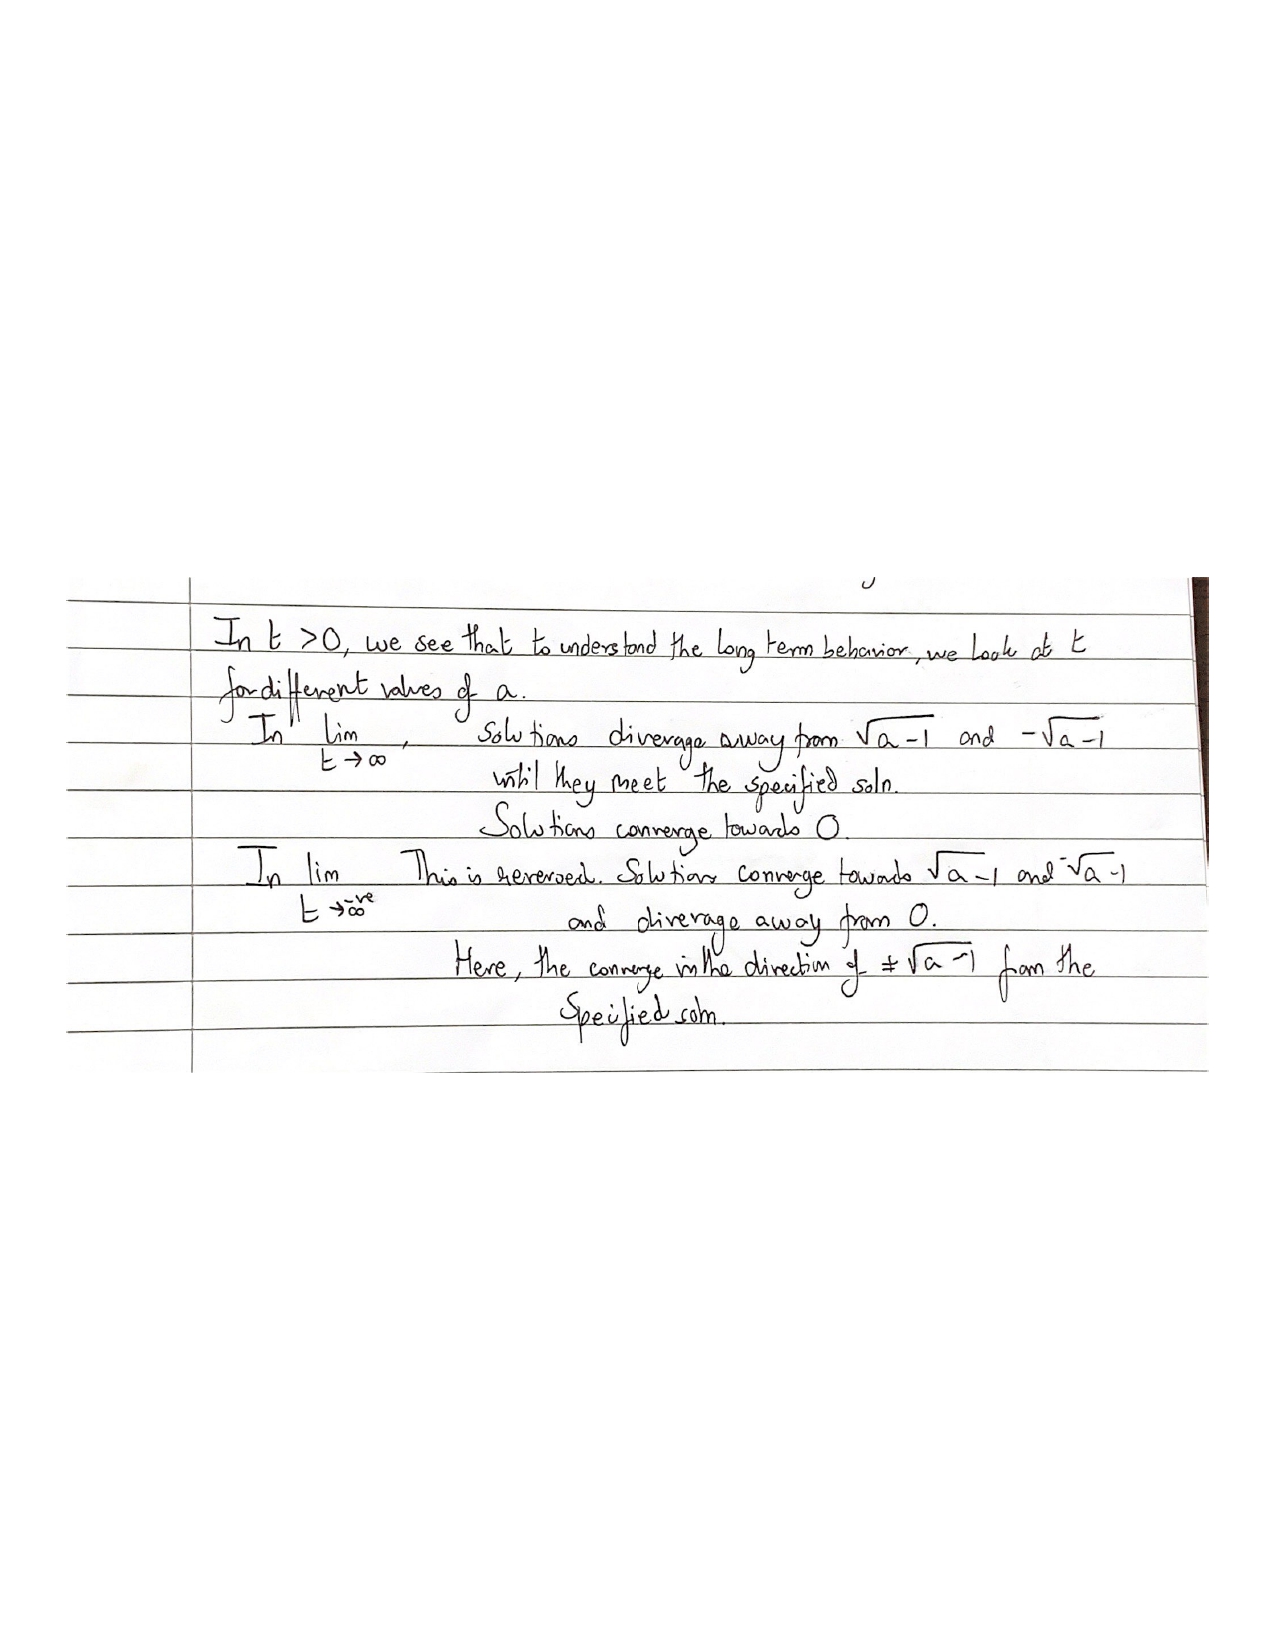 In t >0, we see that to understand the long term behavior, we look at t
for different values of a.
In lim t→∞ , solutions diverage away from √a-1 and -√a-1
until they meet the specified soln.
Solutions converge towards 0.
In lim t→-ve∞ This is reversed. Solutions converge towards √a-1 and -√a-1
and diverage away from 0.
Here, the converge in the direction of ±√a-1 from the
Specified soln.